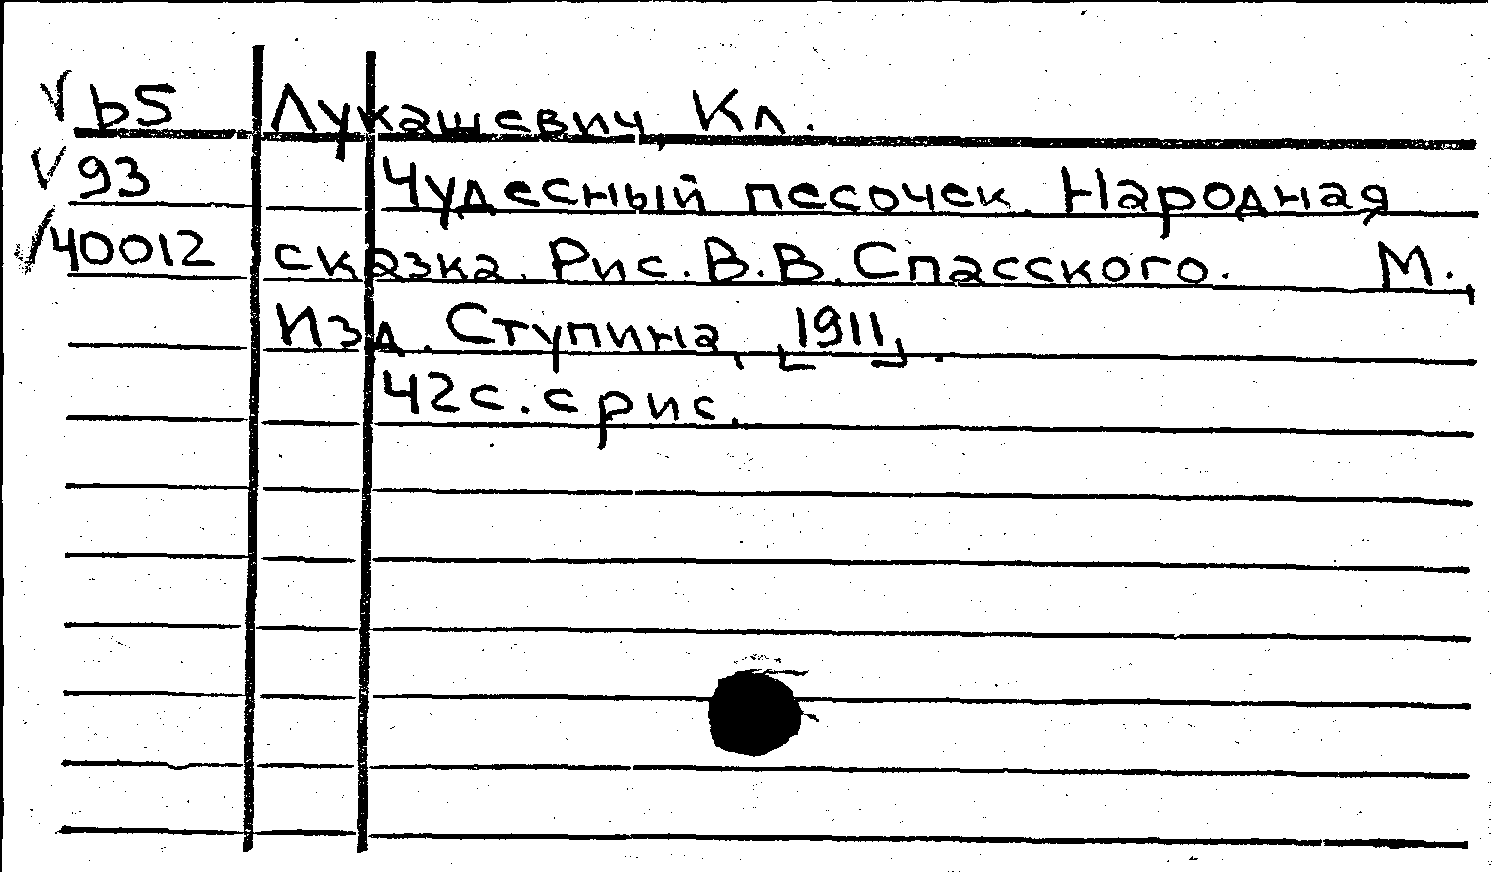 √ b5 Лукашевич, Кл.
√ 93 Чудесный песочек. Народная
√ 40012 сказка. Рис. В.В. Спасского. М.,
Изд. Ступина, [1911].
42с. с рис.